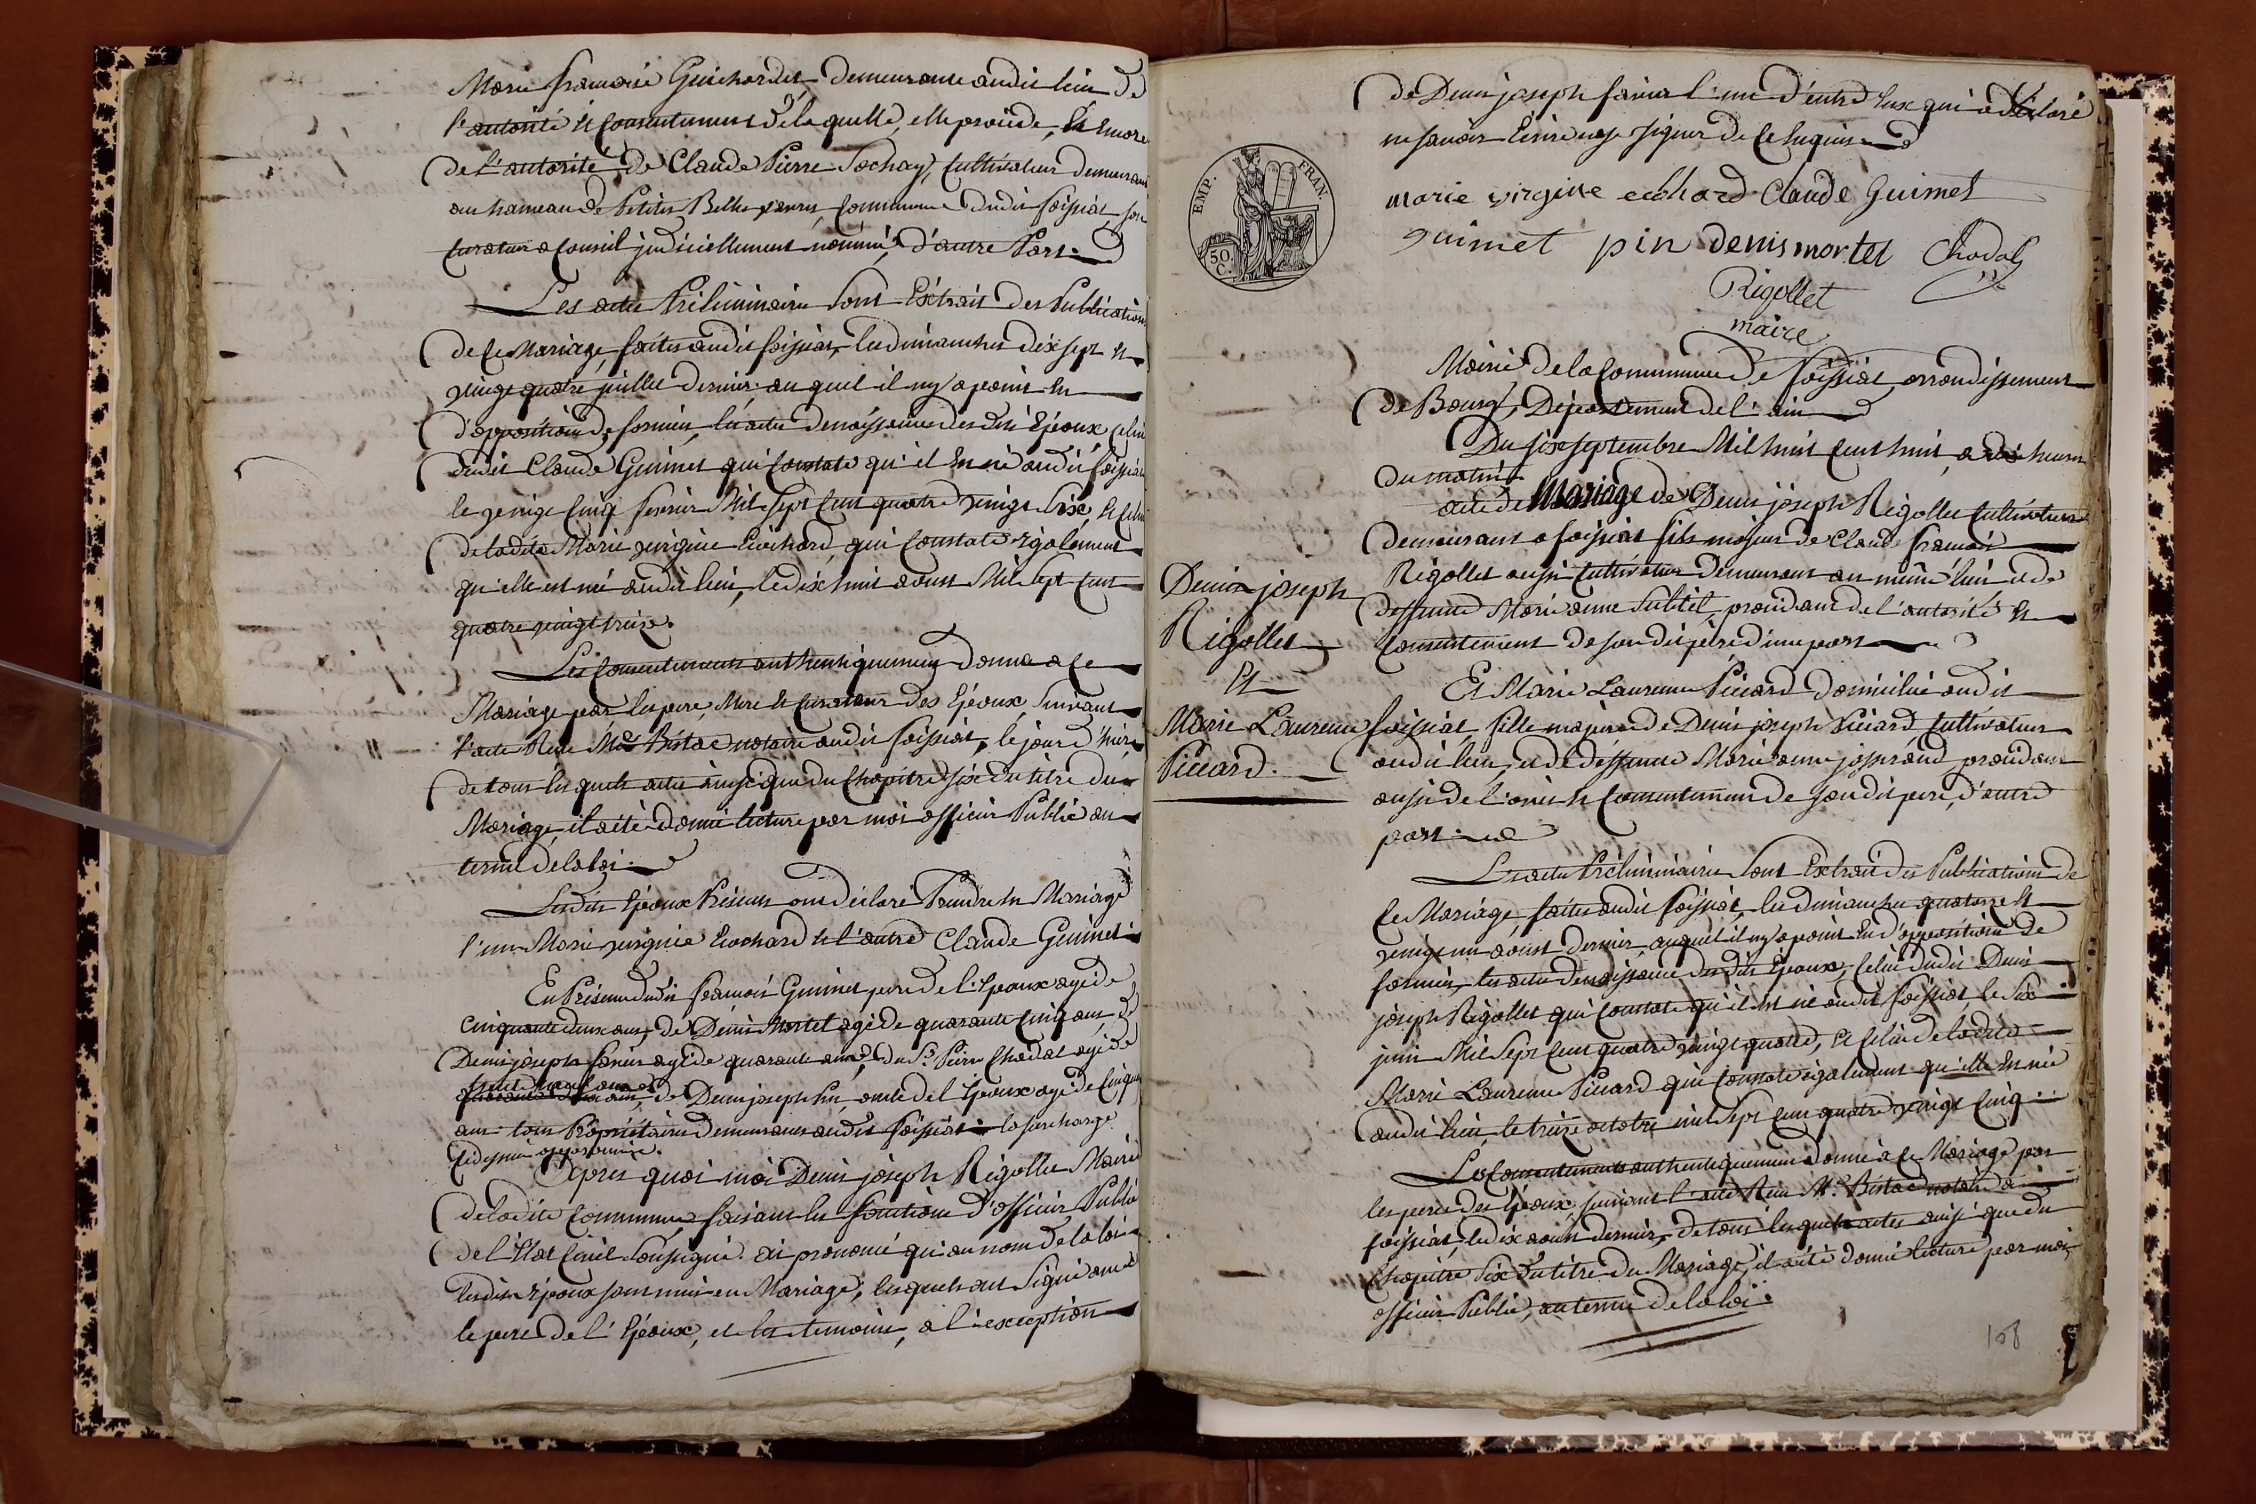 Marie francoise Guichardet, demeurante audit lieu de
l'autorité et consentement de laquelle, elle procéde, Et Encore
de l'autorité de Claude Pierre Sochay, Cultivateur demeurant
au hameau de Petites Belles vavres, Commune dudit foissiat son
Curateur a Conseil judiciellement nommé, d'autre Part.
Les actes Préliminaires sont Extrait des Publications
de ce Mariage, faites audit foissiat, les dimanches dix sept et
vingt quatre juillet dernier, au quel il n'y a point Eu
d'opposition de formées, les actes de naissance desdits Epoux, celui
dudit Claude Guimet qui Constate qu'il Est né audit foissiat
le vingt Cinq fevrier Mil Sept Cent quatre vingt Six, Et celui
de ladite Marie virginie Ecochard, qui Constate également
qu'elle est né audit lieu, le dix huit aoust Mil Sept Cent
quatre vingt treize.
Les Consentements authentiquement donné a ce
Mariage par les pere, Mere et Curateur des Epoux, Suivant
l'acte Reçu Me Bistac notaire audit foissiat, le jour d'hier,
de tous lesquels actes ainsi que du Chapitre six du titre du
Mariage, il a été donné lecture par moi officier Public au
terme de la loi.
Lesdits Epoux Présens ont déclaré Prendre En Mariage
l'un Marie virginie Ecochard et l'autre Claude Guimet.
En Présence dudit francois Guimet pere de l'Epoux agé de
Cinquante deux ans, de Denis Mortel agé de quarante Cinq ans, de
Denis joseph favier agé de quarante ans, du Sr Pierre Chodat agé de
trente neuf ans et
de Denis joseph Pin, oncle de l'Epoux agé de Cinqte
ans tous Propriétaires demeurans audit foissiat. la surcharge
cy dessus approuvée.
Apres quoi moi Denis joseph Rigollet Maire
de ladite Commune, faisant les fonctions d'officier Public
de l'Etat Civil Soussigné ai prononcé qu'au nom de la loi
lesdits Epoux sont unis en Mariage, lesquels ont Signé avec
le pere de l'Epoux, et les temoins, a l'exception
de Denis joseph favier l'un d'entre Eux qui a déclaré
ne savoir Ecrire ny Signer de ce Enquis
EMP. FRAN.
50 C.
marie virginie ecochard Claude Guimet
guimet pin denis mortel Chodat
Rigollet
maire
Mairie de la Commune de foissiat, arrondissement
de Bourg, Département de l'ain
Du six septembre Mil huit Cent huit, a dix heures
du matin
acte de Mariage de Denis joseph Rigollet Cultivateur
demeurant a foissiat fils majeur de Claude francois
Rigollet aussi Cultivateur demeurant au même lieu et de
deffunte Marie anne Subtil, procédant de l'autorité et
Consentement de son dit père d'une part
Denis joseph
Rigollet
Et
Marie Laurence
Piccard.
Et Marie Laurence Piccard domiciliée audit
foissiat, fille majeure de Denis joseph Piccard Cultivateur
audit lieu, et de deffunte Marie anne josserand procédant
aussi de l'avis et Consentement de son dit pere, d'autre
part.
Les actes Préliminaires sont Extrait des Publications de
ce Mariage, faites audit foissiat, les dimanches quatorze et
vingt un aoust dernier, auquel il n'y a point Eu d'opposition de
formées, les actes de naissance desdits Epoux, celui dudit Denis
joseph Rigollet qui Constate qu'il Est né audit foissiat le six
juin Mil Sept Cent quatre vingt quatre, Et celui de ladite
Marie Laurence Piccard qui Constate également qu'elle Est née
audit lieu, le treize octobre mil Sept Cent quatre vingt Cinq.
Les Consentements authentiquement donné à ce Mariage par
les peres des Epoux, suivant l'acte Reçu Me Bistac notaire à
foissiat, le dix aoust dernier, de tous lesquels actes ainsi que du
Chapitre six du titre du Mariage, il a été donné lecture par moi
officier Public, au terme de la loi.
108